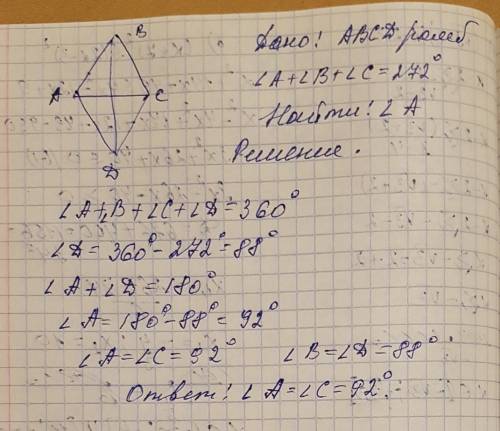 B
A
C
D
Дано! ABCD ромб
∠A+∠B+∠C=272°
Найти! ∠A
Решение.
∠A+∠B+∠C+∠D=360°
∠D=360°-272°=88°
∠A+∠D=180°
∠A=180°-88°=92°
∠A=∠C=92° ∠B=∠D=88°
Ответ! ∠A=∠C=92°.